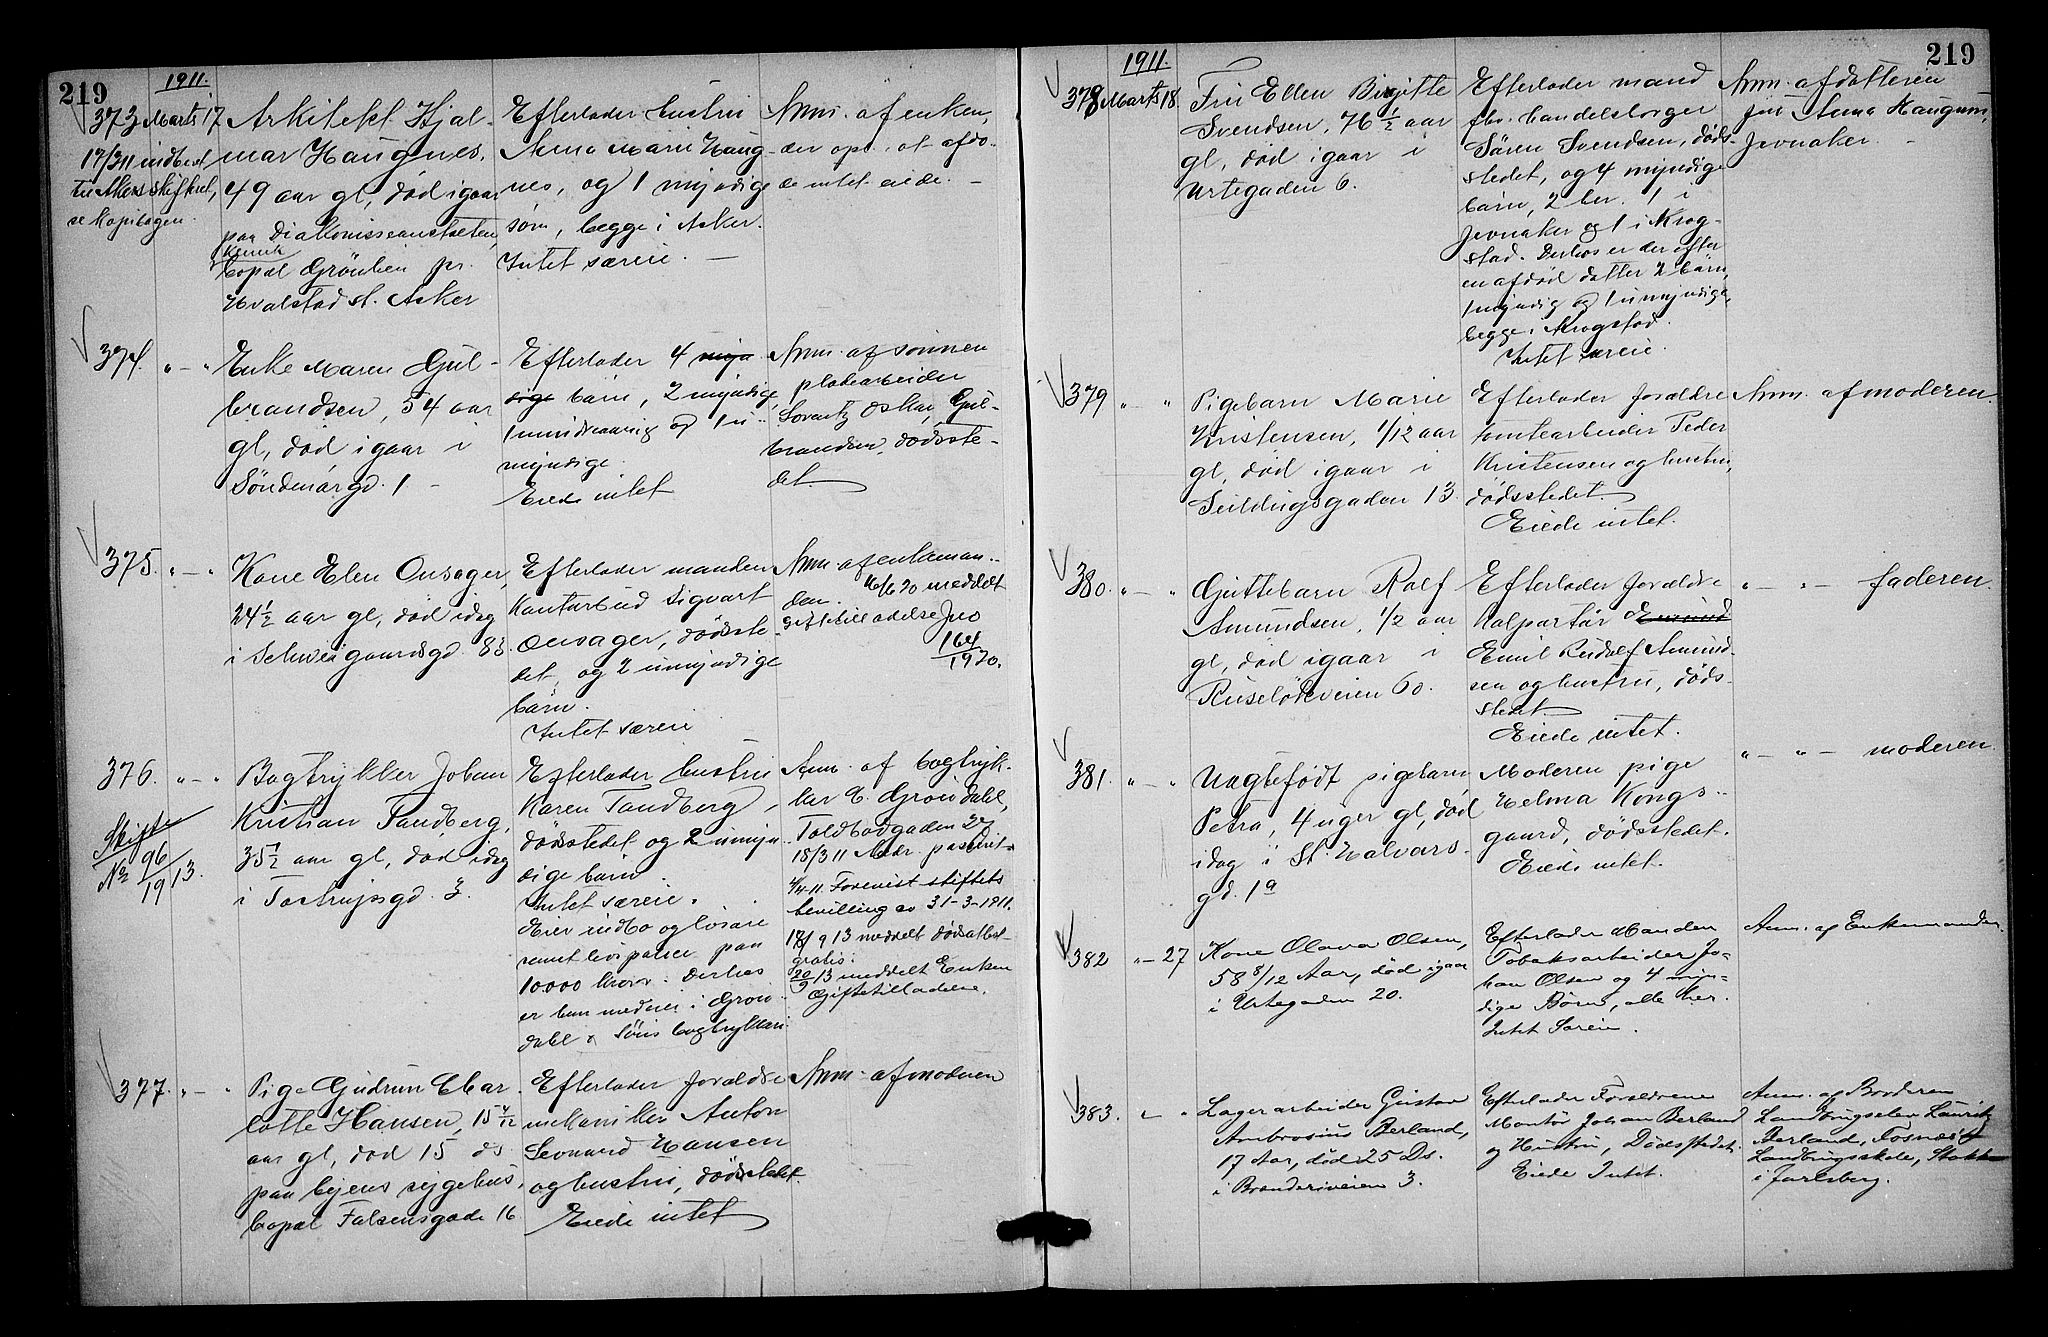 219
1911.
373 Marts 17
17/3 11 indberet
til Akers skifteret,
se kopibogen.
Arkitekt Hjal-
mar Haugnes,
49 aar gl, død igaar
paa Diakonisseanstalten,
bopæl Grönlien pr.
Hvalstad st. Asker
Efterlader hustru
Anna Marie Haug-
nes, og 1 myndige
søn, begge i Asker.
Intet særeie. —
Anm. af enken,
der opl. at afdø-
de intet eiede. —
374. " — "
Enke Maren Gul-
brandsen, 54 aar
gl, død igaar i
Söndenärgd. 1 —
Efterlader 4 myn-
dige børn, 2 myndige,
1 mindreaarig og 1 u-
myndige.
Eiede intet
Anm. af sønnen
pladearbeider
Lorentz Oskar Gul-
brandsen, dødsste-
det.
375. " — "
Kone Elen Onsager,
24 1/2 aar gl, død idag
i Schweigaardsgd. 83.
Efterlader manden
Kontorbud Sigvart
Onsager, dødsste-
det, og 2 umyndige
børn.
Intet særeie
Anm. af enkeman-
den. 16/6 20 meddelt
giftetilladelse Jno
164/1920.
376. " — "
Skifte
No 96/1913.
Bogtrykker Johan
Kristian Tandberg,
35 1/2 aar gl, død idag
i Tostrupsgd. 3.
Efterlader hustru
Karen Tandberg,
dødsstedet og 2 umyn
dige børn.
Intet særeie.
Eier indbo og løsøre
samt livspolice paa
10.000 kroner. Derhos
er han medeier i Grön
dahl & Söns bogtrykkeri
Anm. af bogtryk-
ker C. Gröndahl,
Toldbodgaden
18/3 11
4/4 11 Forevist skiftets
bevilling av 31-3-1911.
13 meddelt dødsattest
gratis.
20/9 13 meddelt Enken
Giftetilladelse.
377. " — "
Pige Gudrun Char
lotte Hansen, 15 4/12
aar gl, død 15 ds
paa byens sygehus,
bopæl Falsensgade 16
Efterlader forældre
mekaniker Anton
Leonard Hansen
og hustru, dødsstedet.
Eiede intet
Anm. af moderen
219
1911.
378 Marts 18.
Fru Ellen Birgitte
Svendsen, 76 1/2 aar
gl, død igaar i
Urtegaden 6.
Efterlader mand
fhv. handelsborger
Sören Svendsen, døds-
stedet, og 4 myndige
børn, 2 her. 1 i
Jevnaker og 1 i Krog-
stad. Derhos er der efter
en afdød datter 2 børn,
1 myndig og 1 umyndige,
begge i Krogstad.
Intet særeie.
Anm. af datteren
fru Anna Haugum,
Jevnaker. —
379 " — "
Pigebarn Marie
Kristensen, 1/12 aar
gl, død igaar i
Suldugsgaden 13.
Efterlader forældre
tomtearbeider Peder
Kristensen og hustru,
dødsstedet.
Eiede intet.
Anm. af moderen.
380. " — "
Guttebarn Rolf
Amundsen, 1/2 aar
gl, død igaar i
Ruseløkveien 60.
Efterlader forældre
Kolportør
Emil Rudolf Amund-
sen og hustru, døds-
stedet.
Eiede intet.
" — " — faderen.
381. " — "
Uægtefødt pigebarn
Petra, 4 uger gl, død
idag i St. Halvards
gd. 1a
Moderen pige
Helma Kongs-
gaard, dødsstedet.
Eiede intet.
" — " — moderen.
382 " — 27
Kone Olava Olsen,
58 8/12 Aar, død igaar
i Urtegaden 20.
Efterlader Manden
Tobaksarbeider Jo-
han Olsen og 4 myn-
dige Børn, alle her.
Intet Særeie.
Anm. af Enkemanden.
383. " — "
Lagerarbeider Gustav
Ambrosius Berland,
17 Aar, død 25 Ds.
i Brænderiveien 3.
Efterlader Forældrene
Montør Johan Berland
og Hustru, Dødsstedet.
Eiede Intet.
Anm. af Broderen
Landbrugselev Lauritz
Berland, Fosnæs
Landbrugsskole, Stokke
i Jarlsberg.